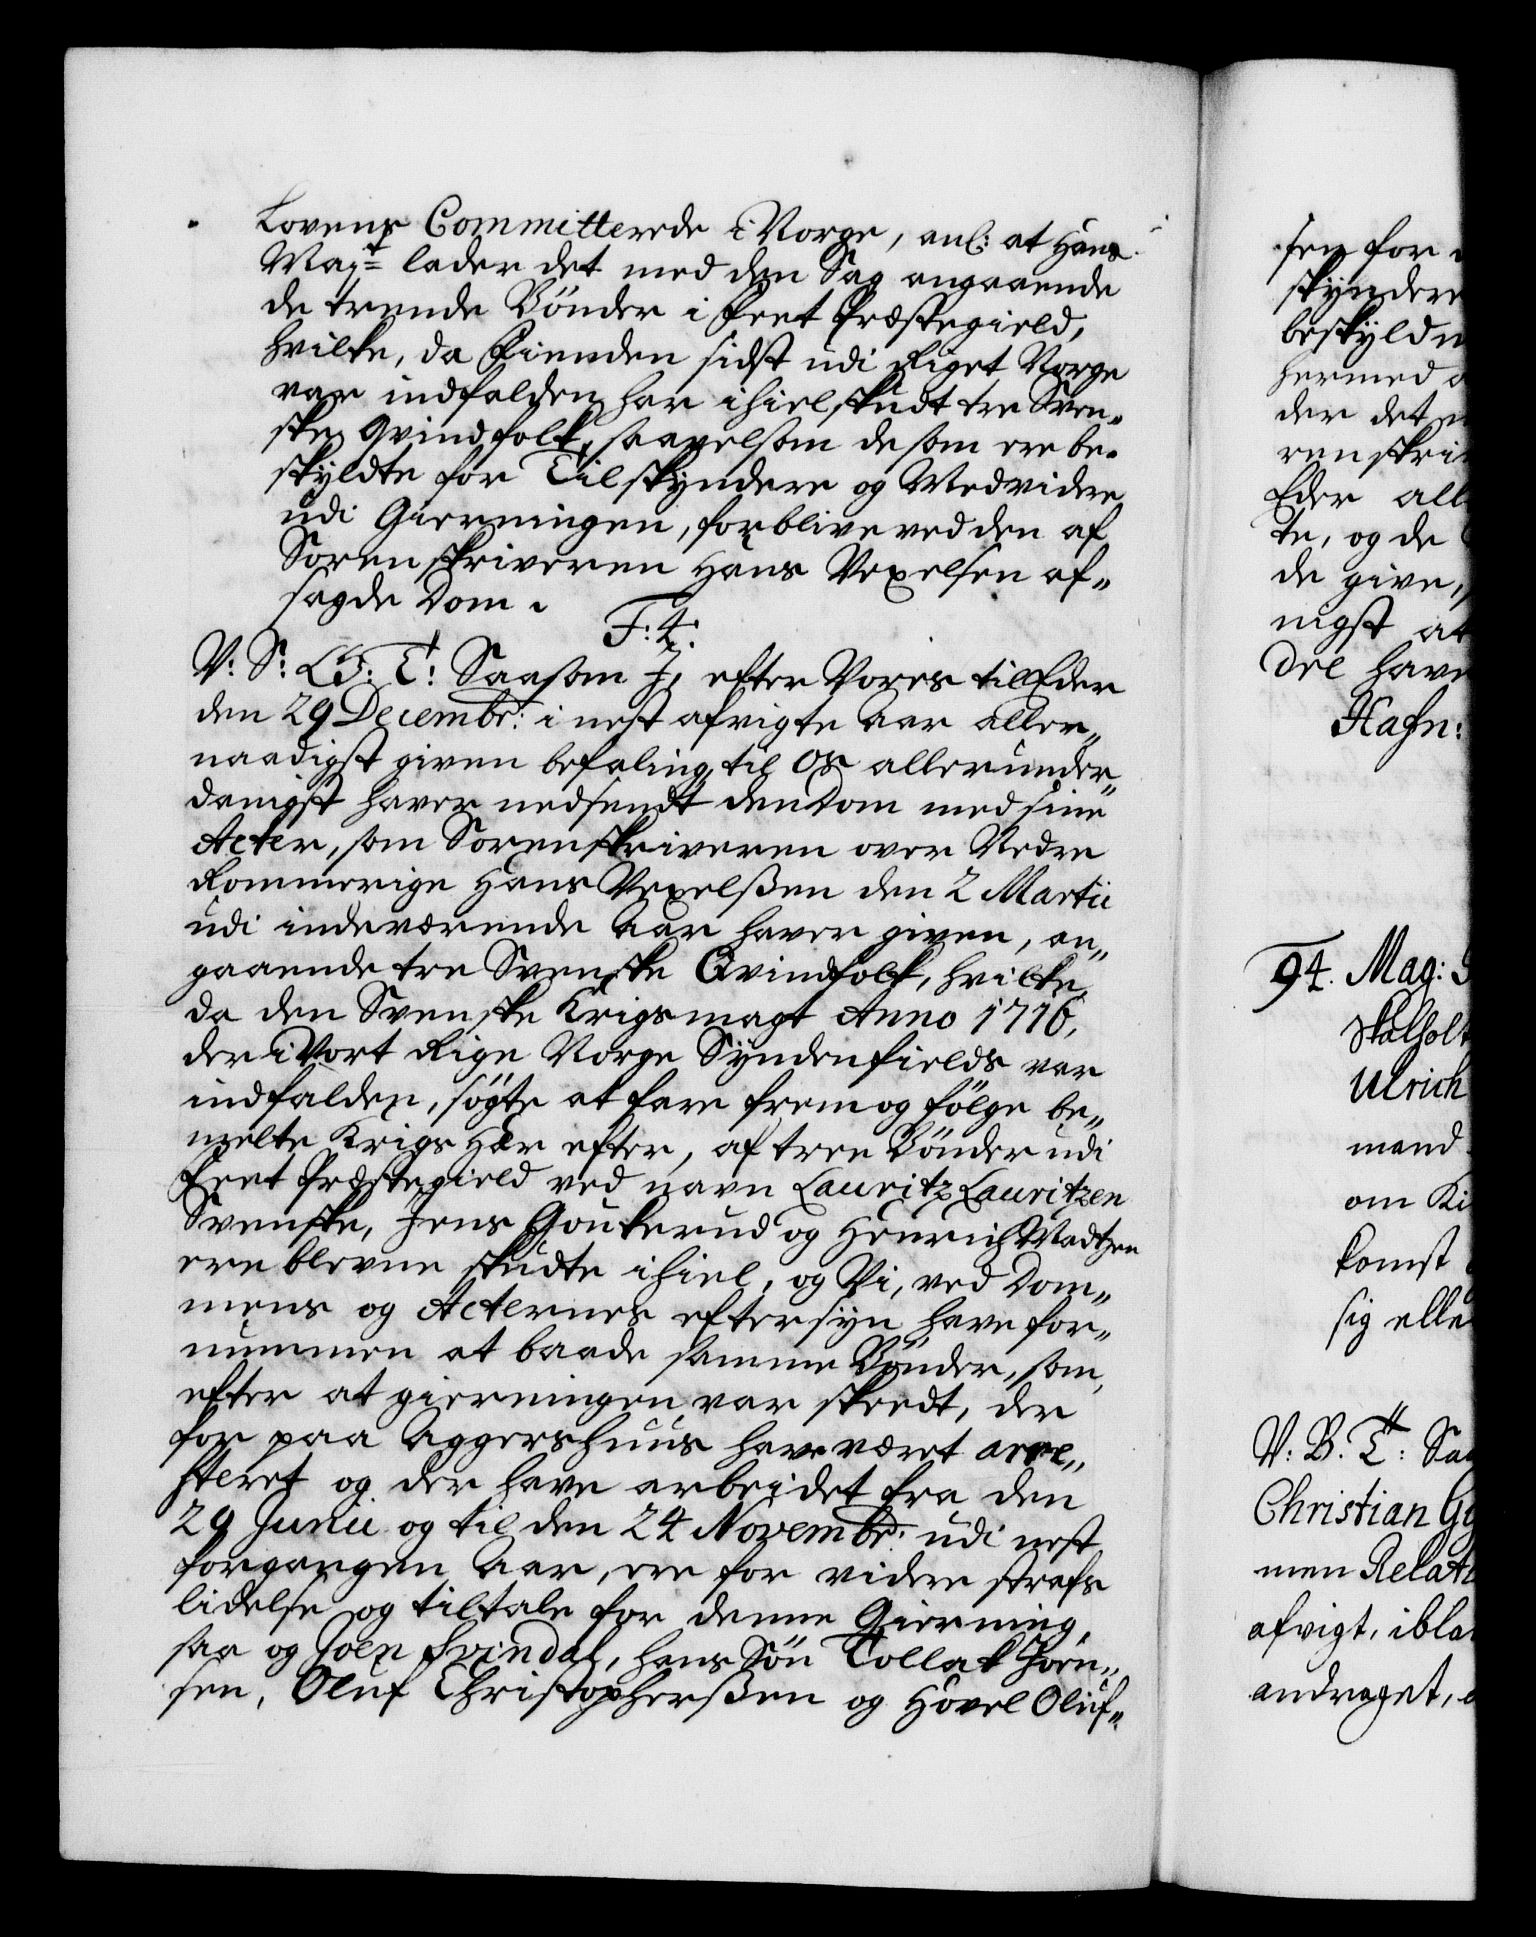 Lovens Committerede i Norge, anl: at Hans
Maj:t lader det med den Sag angaaende
de trende Bönder i Enet Præstegield,
hvilke, da Fienden sidst udi Riget Norge
var indfalden har ihielskudt tre Sven„
ske Qvindfolk, saavelsom de som ere be„
skyldte for Tilskyndere og Medvidere
udi Gierningen, forblive ved den af
Sorenskriveren Hans Vexelsen af„
sagde Dom.
F: 4:
V: S: G: T: Saasom I, efter Vores til Eder
den 29 Decembr: i nest afvigte Aar aller„
naadigst given befaling, til Os allerunder„
danigst haver nedsendt den Dom med sine
Acter, som Sorenskriveren over Nedre
Rommerige Hans Vexelssen den 2 Martii
udi indeværende Aar haver given, an„
gaaende tre Svenske Qvindfolk, hvilke,
da den Svenske Krigsmagt Anno 1716,
der i Vort Rige Norge Syndenfields var
indfalden, søgte at fare frem og fölge be„
melte Krigs Hær efter, af tree Bönder udi
Enet Præstegield ved navn Lauritz Lauritzen
Svenske, Jens Gonkerud og Henrich Madtzen
ere blevne skudte ihiel, og Vi, ved Dom„
mens og Acternes eftersyn have for„
nummen at baade samme Bönder, som,
efter at gierningen var skeedt, der
for paa Aggershuus have været arre„
steret og der have arbeidet fra den
29 Junii og til den 24 Novembr: udi nest
forgangen Aar, ere for videre strafs
lidelse og tiltale for denne Gierning,
saa og Joen Svindal, hans Sön Tollak Joen„
sen, Oluf Christopherssen og Hovel Oluf„
sen for
skyndere
beskyldn
hermed
der det
renskri
Eder all
te, og de
de give,
nigst at
del have
Hafn:
94. Mag:
Skalholt
Ulrich
mand
om Ki
komst
sig elle
V: B: T: Sa
Christian Gy
men Relat
afvigt, ibla
andraget,